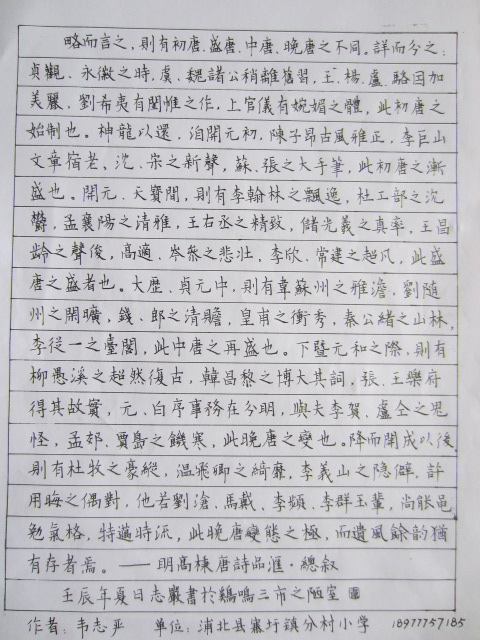 略而言之，則有初唐、盛唐、中唐、晚唐之不同。詳而分之：
貞觀、永徽之時，虞、魏諸公稍離舊習，王、楊、盧、駱因加
美麗、劉希夷有閨帷之作，上官儀有婉媚之體，此初唐之
始制也。神龍以還，洎開元初，陳子昂古風雅正，李巨山
文章宿老，沈、宋之新聲，蘇、張之大手筆，此初唐之漸
盛也。開元、天寶間，則有李翰林之飄逸，杜工部之沈
鬱，孟襄陽之清雅，王右丞之精致，儲光義之真率，王昌
齡之聲俊，高適、岑參之悲壯，李欣、常建之超凡，此盛
唐之盛者也。大歷、貞元中，則有韋蘇州之雅澹，劉隨
州之閑曠，錢、郎之清贍，皇甫之衝秀，秦公緒之山林，
李從一之臺閣，此中唐之再盛也。下暨元和之際，則有
柳愚溪之超然復古，韓昌黎之博大其詞，張、王樂府
得其故實，元、白序事務在分明，與夫李賀、盧仝之鬼
怪，孟郊、賈島之饑寒，此晚唐之變也。降而開成以後，
則有杜牧之豪縱，温飛卿之綺靡，李義山之隱僻，許
用晦之偶對，他若劉滄、馬戴、李頻、李群玉輩，尚能黽
勉氣格，特邁時流，此晚唐變態之極，而遺風餘韵猶
有存者焉。——明高棟唐詩品滙·總叙
壬辰年夏日志嚴書於鷄鳴三市之陋室
作者：韦志严 单位：浦北县寨圩镇分村小学 18977757185